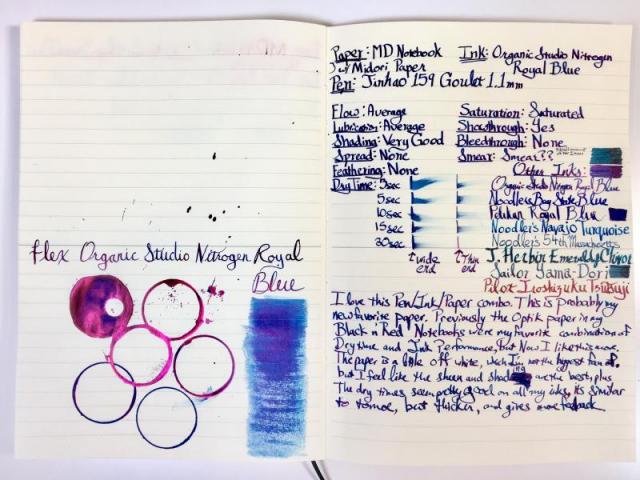 Flex Organic Studio Nitrogen Royal
Blue
Paper: MD Notebook
w/ Midori Paper
Pen: Jinhao 159 Goulet 1.1mm
Ink: Organic Studio Nitrogen
Royal Blue
Flow: Average
Lubrication: Average
Shading: Very Good
Spread: None
Feathering: None
Dry Time: 5sec
5sec
10sec
15sec
20sec
↑ wide
end
↑ Thin
end
Saturation: Saturated
Showthrough: Yes
Bleedthrough: None
Smear: Smear??
Other Inks:
Organic Studio Nitrogen Royal Blue
Noodler's Bay State Blue
Pelikan Royal Blue
Noodler's Navajo Turquoise
Noodler's 54th Massachusetts
J. Herbin Emerald of Chivor
Sailor Yama-Dori
Pilot Iroshizuku Tsutsuji
I love this Pen/Ink/Paper combo. This is probably my
new favorite paper. Previously the Optik paper in my
Black n Red Notebooks were my favorite combination of
Dry time and Ink Performance, but Now I like this more.
The paper is a little off white, which I'm not the biggest fan of,
but I feel like the sheen and shading are the best, plus
The dry times seem pretty good on all my inks, its similar
to tomoe, but thicker, and gives more feedback.